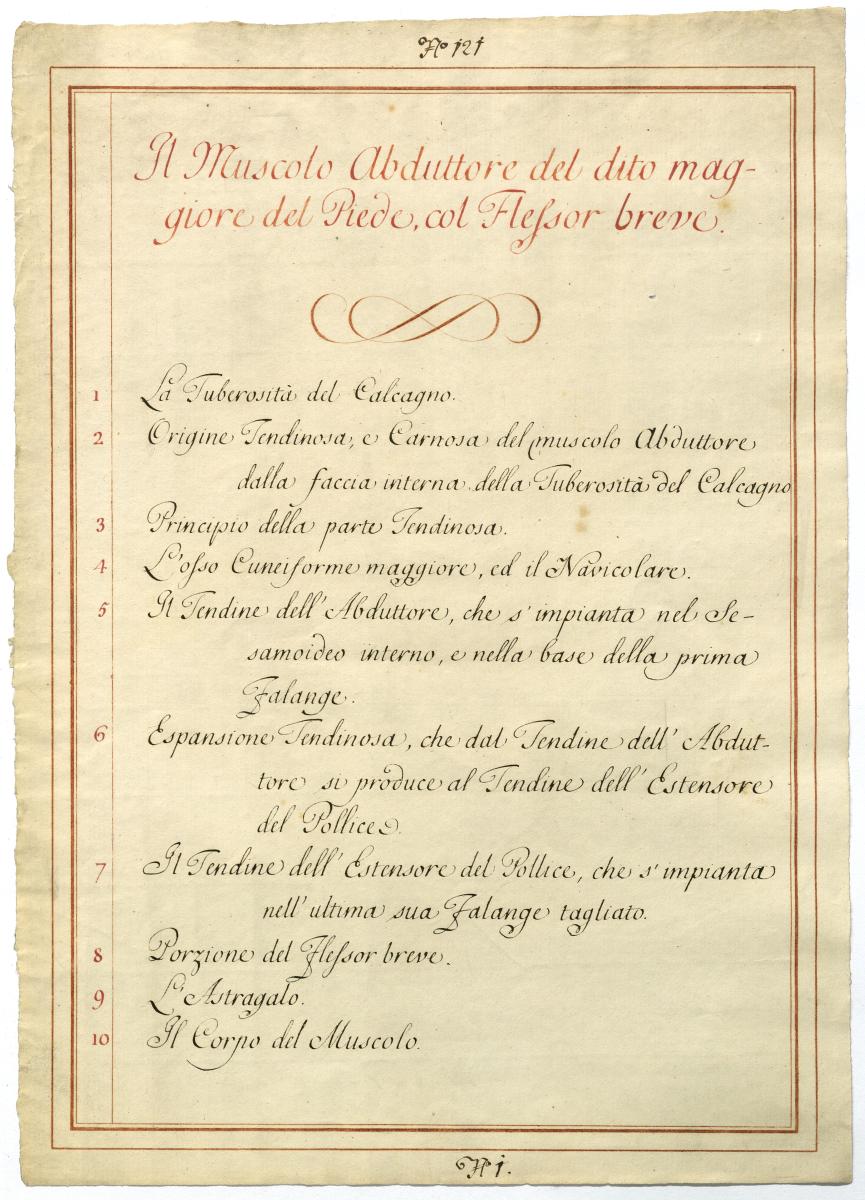 No 121
Il Muscolo Abduttore del dito mag-
giore del Piede, col Flessor breve.
1 La Tuberosità del Calcagno.
2 Origine Tendinosa, e Carnosa del muscolo Abduttore
dalla faccia interna della Tuberosità del Calcagno
3 Principio della parte Tendinosa.
4 L'osso Cuneiforme maggiore, ed il Navicolare.
5 Il Tendine dell'Abduttore, che s'impianta nel Se-
samoideo interno, e nella base della prima
Falange.
6 Espansione Tendinosa, che dal Tendine dell'Abdut-
tore si produce al Tendine dell'Estensore
del Pollice.
7 Il Tendine dell'Estensore del Pollice, che s'impianta
nell'ultima sua Falange tagliato.
8 Porzione del Flessor breve.
9 L'Astragalo.
10 Il Corpo del Muscolo.
N 1.